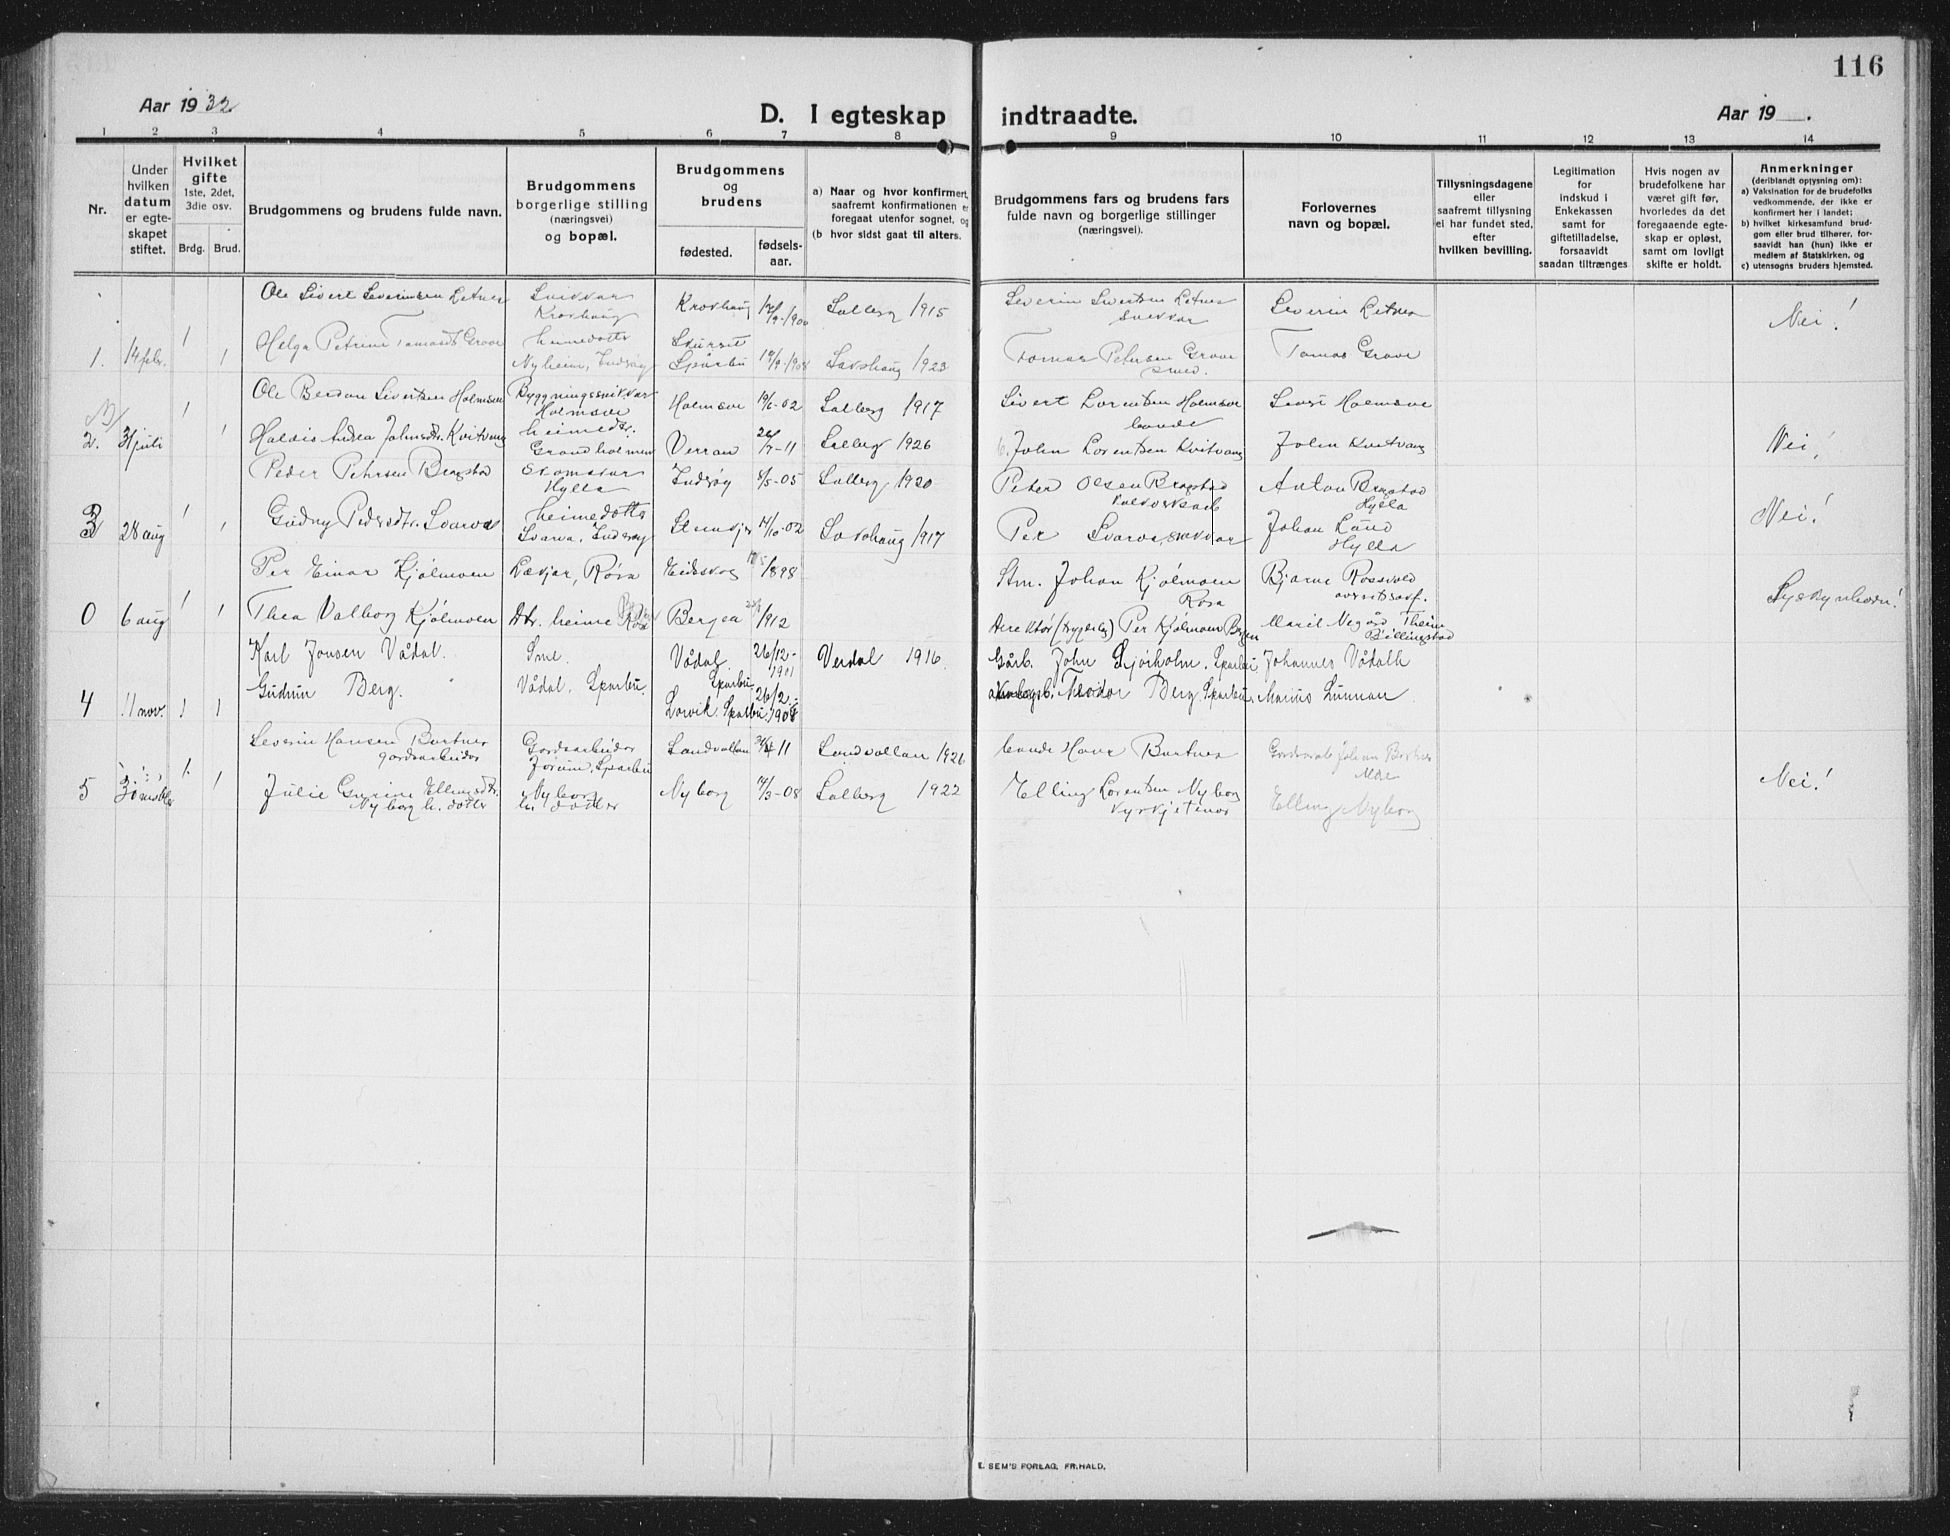 116
Aar 1932
D. I egteskap indtraadte.
Aar 19 .
1 2 3 4 5 6 7 8 9 10 11 12 13 14
Nr.
Under hvilken datum er egteskapet stiftet.
Hvilket gifte
1ste, 2det, 3die osv.
Brdg. Brud.
Brudgommens og brudens fulde navn.
Brudgommens
borgerlige stilling
(næringsvei)
og bopæl.
Brudgommens
og
brudens
fødested.
fødsels-
aar.
a) Naar og hvor konfirmert,
saafremt konfirmationen er
foregaat utenfor sognet, og
(b hvor sidst gaat til alters.
Brudgommens fars og brudens fars
fulde navn og borgerlige stillinger
(næringsvei).
Forlovernes
navn og bopæl.
Tillysningsdagene
eller
saafremt tillysning
ei har fundet sted,
efter
hvilken bevilling.
Legitimation
for
indskud i
Enkekassen
samt for
giftetilladelse,
forsaavidt
saadan tiltrænges
Hvis nogen av
brudefolkene har
været gift før,
hvorledes da det
foregaaende egte-
skap er opløst,
samt om lovligt
skifte er holdt.
Anmerkninger
(deriblandt oplysning om):
a) Vaksination for de brudefolks
vedkommende, der ikke er
konfirmert her i landet;
b) hvilket kirkesamfund brud-
gom eller brud tilhører, for-
saavidt han (hun) ikke er
medlem af Statskirken, og
c) utensogns bruders hjemsted.
Ole Sivert Severinsen Letnes Snikkar Krokhaug Krokhaug 1900 Salberg 1915 Severin Sivertsen Letnes snikkar Severin Letnes Nei!
1. 14 febr. 1 1 Helga Petrine Tomasdt Grove heimedotter Nyheim, Inderøy Sparbu 1908 Sakshaug 1923 Tomas Petersen Grove smed. Tomas Grove
Ole Berdon Sivertsen Holmsve Byggningssnikkar Holmsve Holmsve 19/6-02 Salberg 1917 Sivert Lorentsen Holmsve bonde Sivert Holmsve
2. 3 juli 1 1 Haldis Andrea Johnsdtr. Kvitvang heimedtr. Grandholmen Verran 26/7-11 Salberg 1926 John Lorentsen Kvitvang John Kvitvang Nei!
Peder Petersen Bragstad Skomakar Hylla Inderøy 5/5-05 Salberg 1920 Peter Olsen Bragstad kalkverksarb Anton Bragstad Hylla
3 28 aug 1 1 Gudny Pedersdtr. Svarva heimedotter Svarva, Inderøy Steinkjer 14/10-02 Sakshaug 1917 Per Svarva, snikkar Johan Lund Hylla Nei!
Per Einar Kjølmoen Lækjar, Røra Eidskog 1898 Stm. Johan Kjølmoen Røra Bjarne Rossvold overrettssakf.
0 6 aug 1 1 Thea Valborg Kjølmoen Dtr. heime Bergen 1912 Direktör Per Kjølmoen Bergen Marit Negård Theim Billingstad Syskynborn!
Karl Jonsen Vådal. Sme. Vådal, Sparbu 26/12-1901 Verdal 1916. Gårb. John Stjørholm, Sparbu Johannes Vådalk
4 11 nov. 1 1 Gudrun Berg. Vådal, Sparbu. Lorvik. Sparbu. 26/2-1908 Teodor Berg, Sparbu, Marius Lunnan
Severin Hansen Bartnes gardsarbeider Gardsarbeider Forum, Sparbu Sandvollan 11 Sandvollan 1926 bonde Hans Bartnes Gardsarb Johan Bartnes Mære
5 30 1 1 Julie Gurine Ellingsdtr. Nyborg h. dotter Nyborg h. dotter Nyborg 14/3-08 Salberg 1922 Elling Lorentsen Nyborg kyrkjetenar Elling Nyborg Nei!
E. SEM'S FORLAG, FR.HALD.